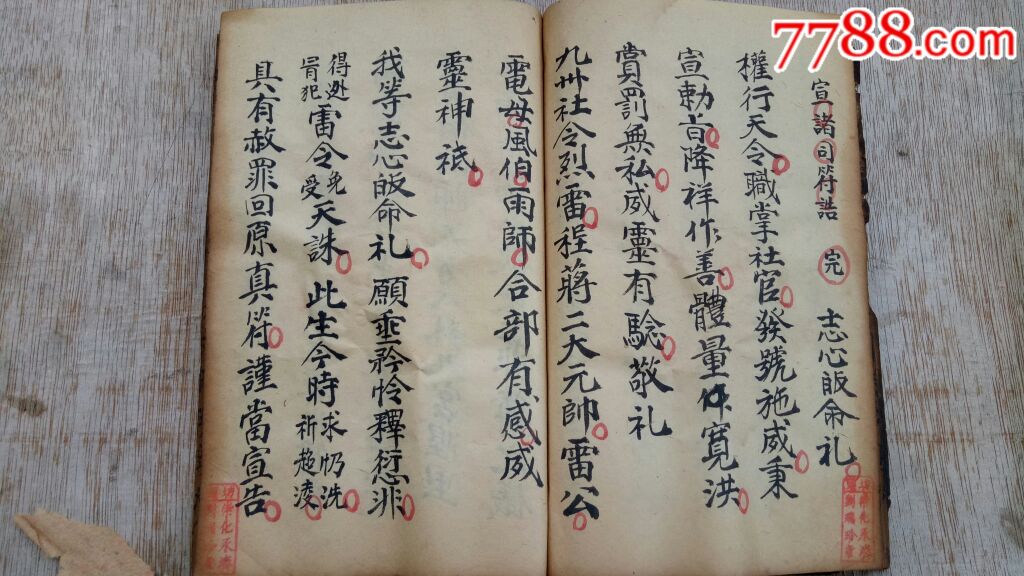 7788.com
宣諸司符誥 完 志心皈命礼
權行天令職掌社官發號施威秉
宣勅旨降祥作善體量作寬洪
賞罰無私威靈有驗敬礼
九州社令烈雷程蔣二大元帥雷公
電母風伯雨師合部有感威
靈神祇
我等志心皈命礼願垂矜怜釋愆非
得遊雷令免天誅此生今時求忏洗
冐犯受祈超凌
具有赦罪回原真符謹當宣告